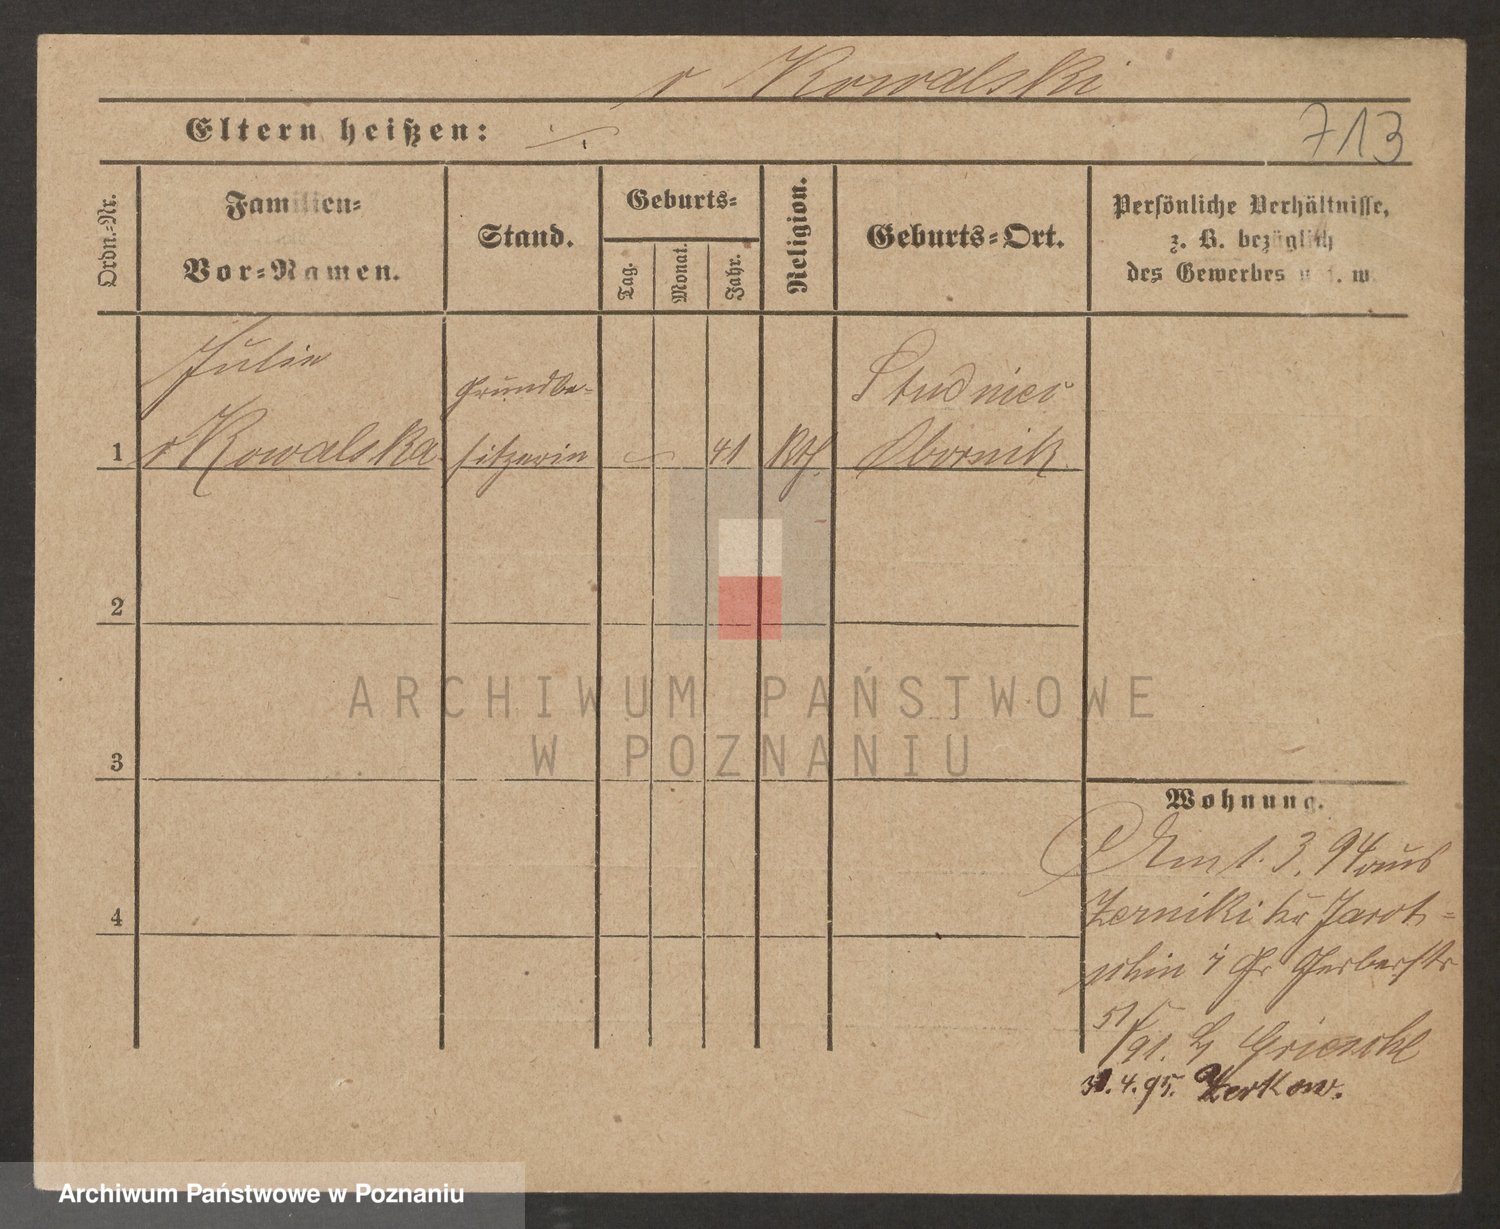 v Kowalski
Eltern heißen:
713
Ordn.-Nr.
Familien-
Vor-Namen.
Stand.
Geburts-
Tag.
Monat.
Jahr.
Religion.
Geburts-Ort.
Persönliche Verhältnisse,
z. B. bezüglich
des Gewerbes u. s. w.
Julie
Grundbe-
Studniec
1 v Kowalska
sitzerin
41
Kth.
Obornik
2
3
4
Wohnung.
Am 1. 3. 94 aus
Zerniki Kr Jarot-
schin
Gr Gerberstr
51
31.4.95. Zerkow.
ARCHIWUM PAŃSTWOWE
W POZNANIU
Archiwum Państwowe w Poznaniu